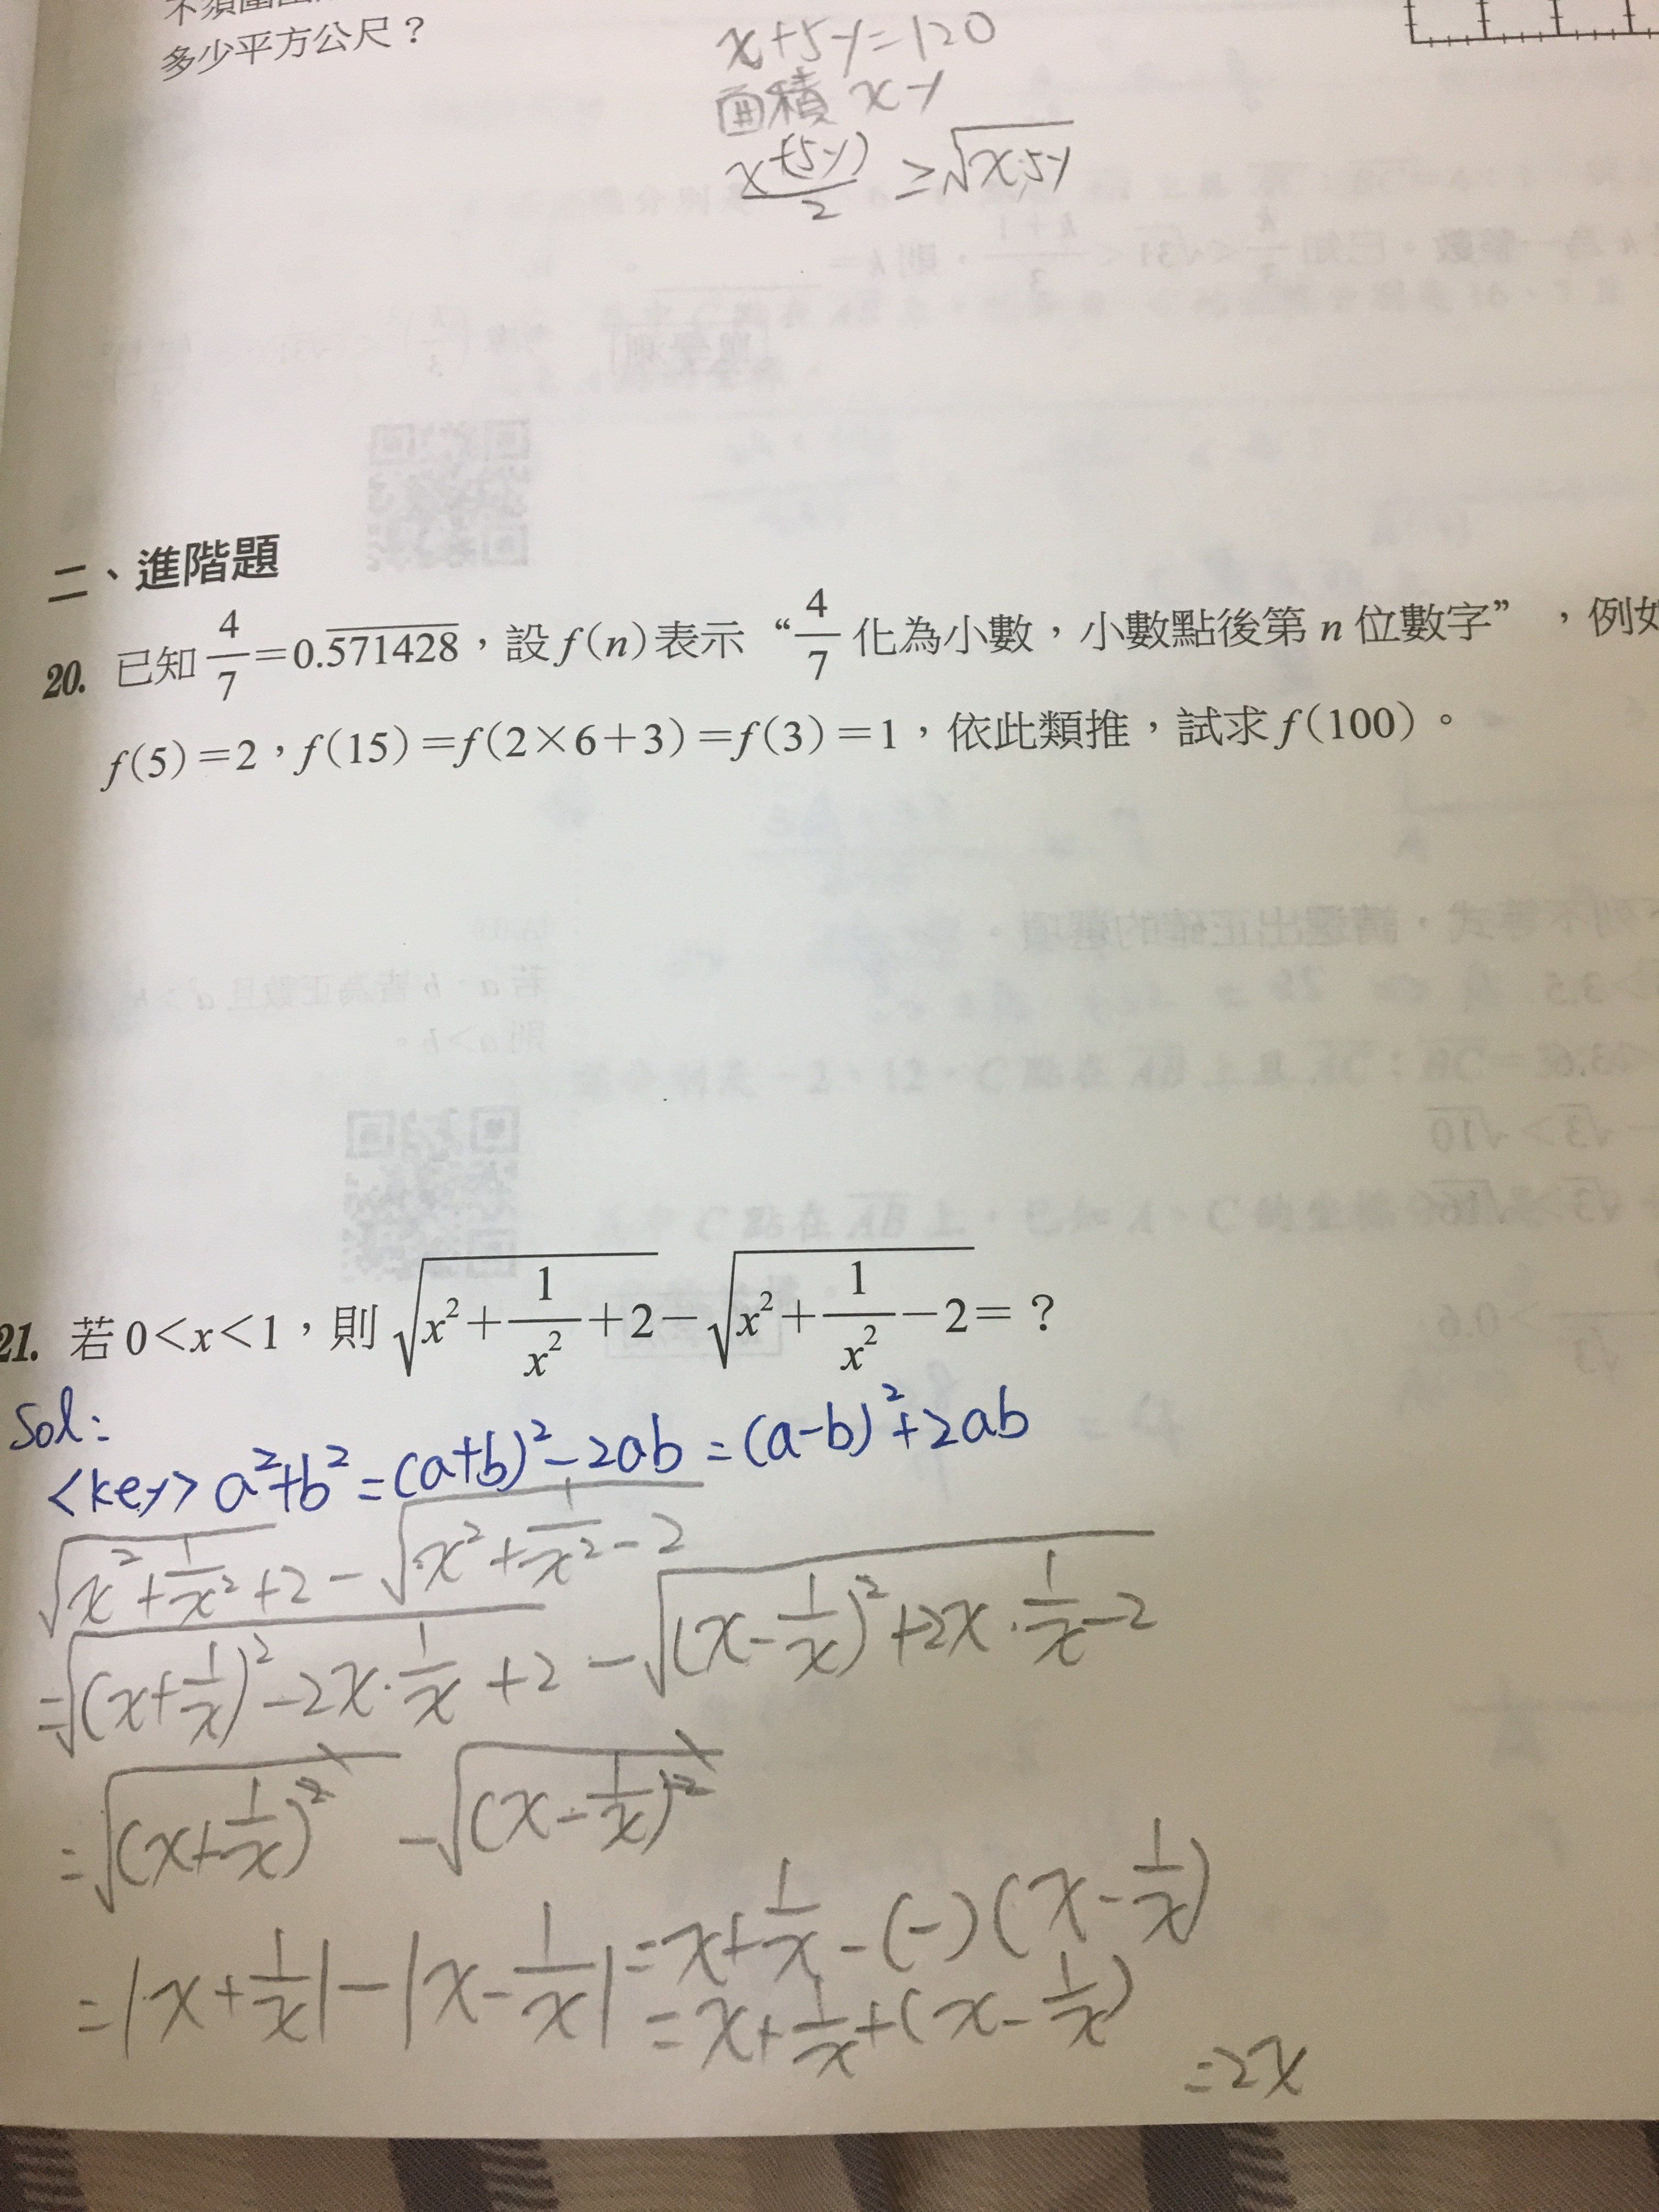 多少平方公尺？
x+5y=120
面積 xy
x+(5y)/2 ≥ √(x·5y)
二、進階題
20. 已知 4/7=0.571428，設 f(n) 表示“4/7 化為小數，小數點後第 n 位數字”，例如
f(5)=2，f(15)=f(2×6+3)=f(3)=1，依此類推，試求 f(100)。
21. 若 0<x<1，則 √(x²+1/x²+2)−√(x²+1/x²−2)=？
Sol:
<key> a²+b²=(a+b)²−2ab=(a-b)²+2ab
√(x²+1/x²+2) − √(x²+1/x²−2)
=√((x+1/x)²−2x·1/x+2) − √((x−1/x)²+2x·1/x−2)
=√((x+1/x)²) − √((x−1/x)²)
=|x+1/x|−|x−1/x| =x+1/x−(−)(x−1/x)
=x+1/x+(x−1/x)
=2x